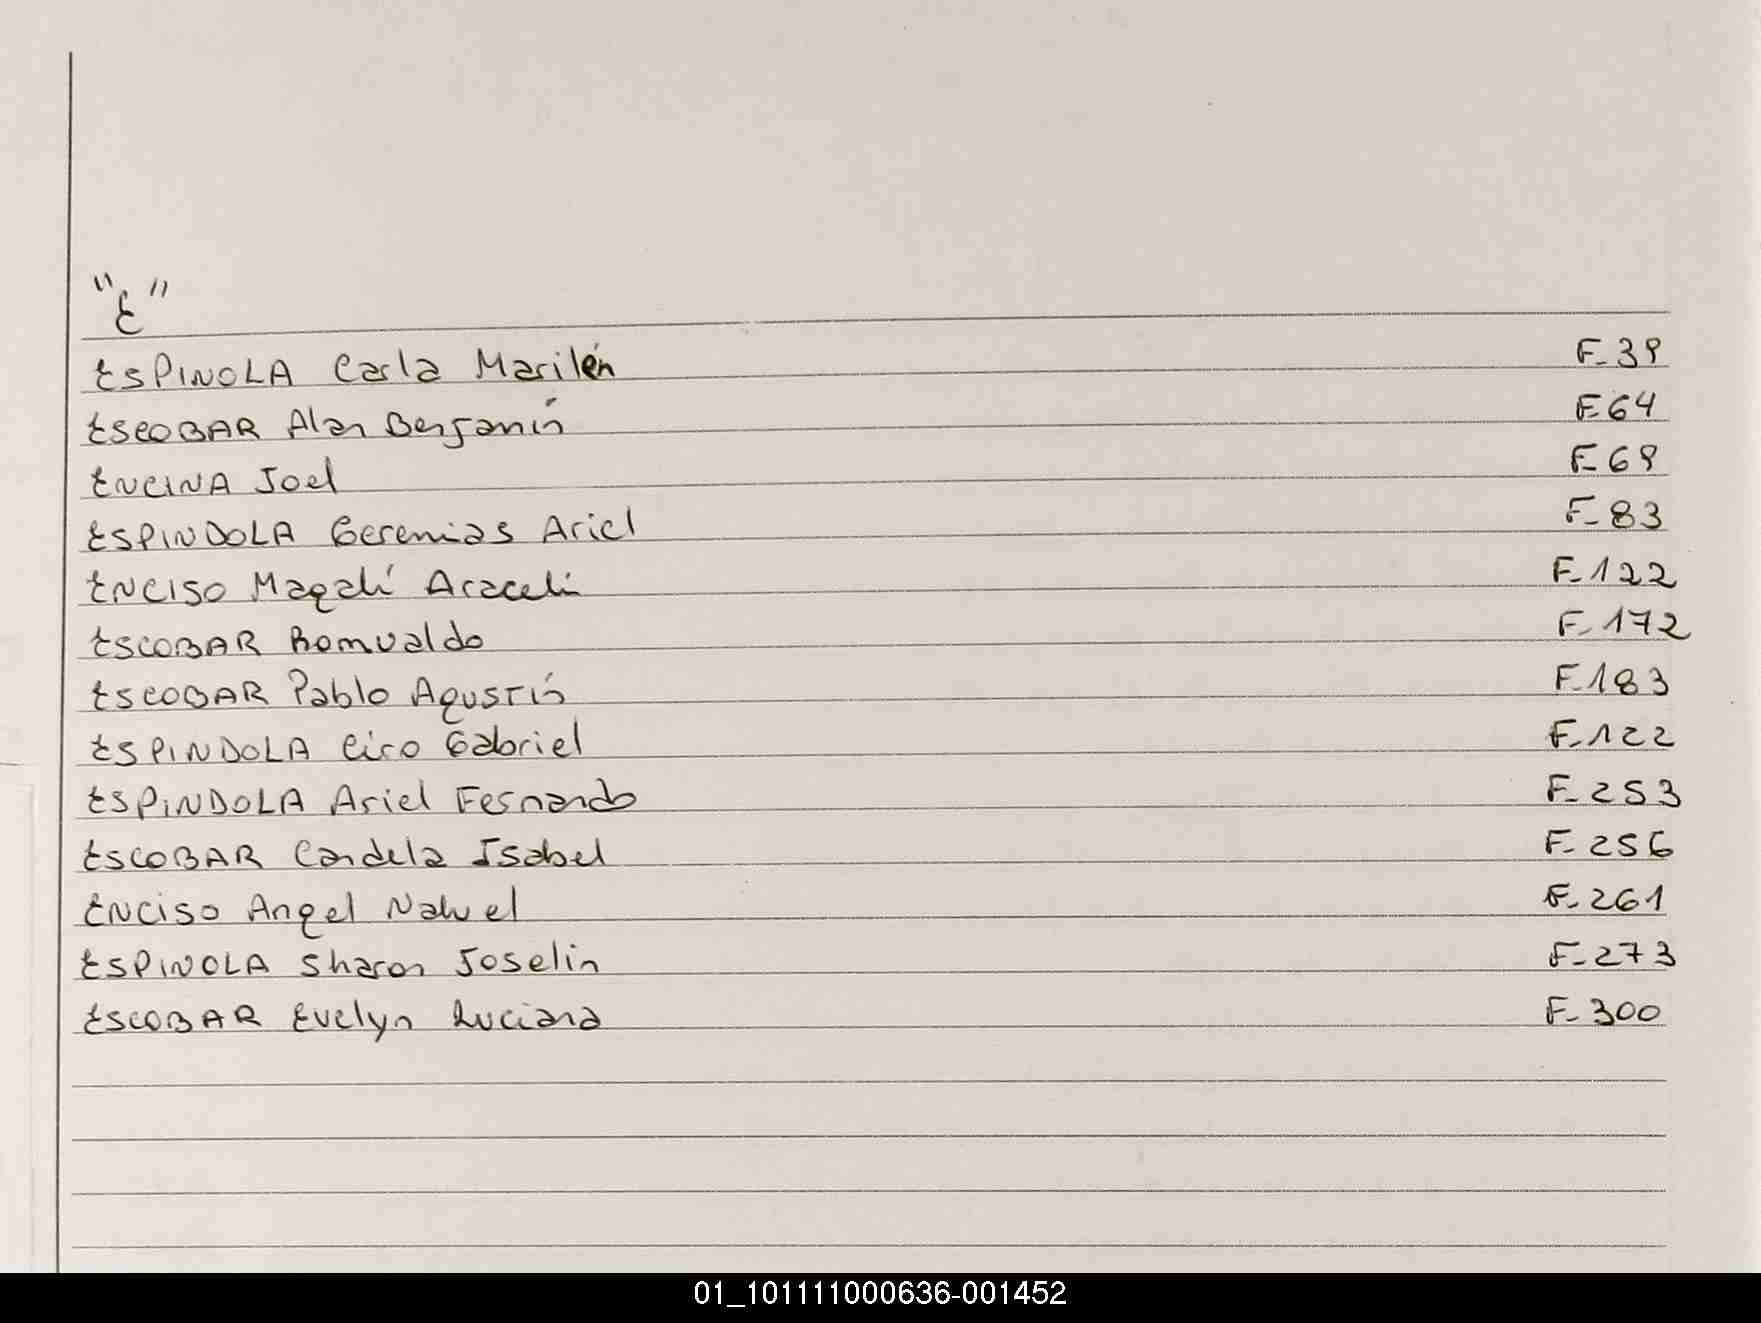 "E"
ESPINOLA Carla Marilén F-39
ESCOBAR Alan Benjamín F-64
ENCINA Joel F-69
ESPINDOLA Geremias Ariel F-83
ENCISO Magalí Araceli F-122
ESCOBAR Romualdo F-172
ESCOBAR Pablo Agustín F-183
ESPINDOLA Ciro Gabriel F-122
ESPINDOLA Ariel Fernando F-253
ESCOBAR Candela Isabel F-256
ENCISO Angel Nahuel F-261
ESPINOLA Sharon Joselin F-273
ESCOBAR Evelyn Luciana F-300
01_101111000636-001452